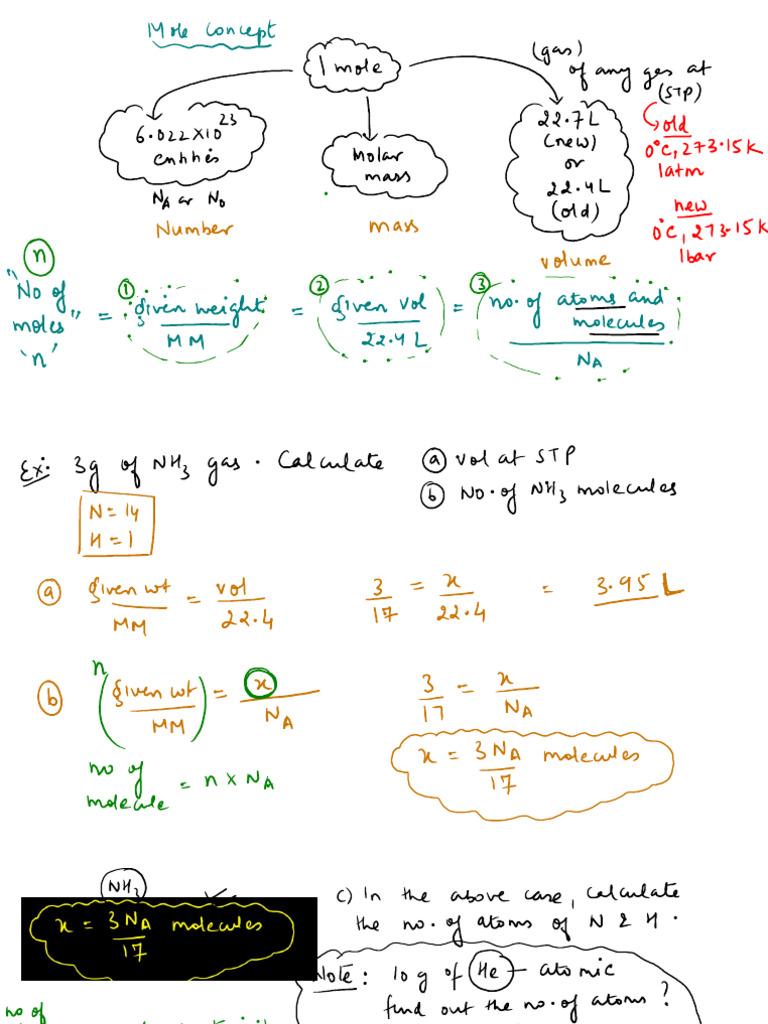 Mole Concept
1 mole
(gas)
of any ges at
(STP)
6.022×10²³
entities
NA or N0
Number
Molar
mass
mass
22.7L
(new)
or
22.4L
(old)
volume
old
0°C, 273.15K
1atm
new
0°C, 273.15K
1bar
n
"No of
moles"
'n'
= ① given weight / MM = ② given vol / 22.4L = ③ no. of atoms and molecules / NA
Ex: 3g of NH3 gas. Calculate ⓐ vol at STP
ⓑ No. of NH3 molecules
N=14
H=1
ⓐ given wt / MM = vol / 22.4 3/17 = x/22.4 = 3.95 L
ⓑ n (given wt / MM) = x / NA 3/17 = x/NA
x = 3NA/17 molecules
no of
molecule = n × NA
NH3
x = 3NA/17 molecules
c) In the above case, calculate
the no. of atoms of N & H.
Note: 10g of He – atomic
find out the no. of atoms?
no of